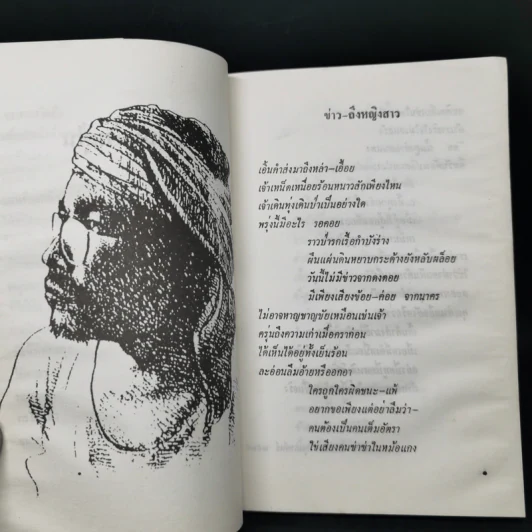 ข่าว-ถึงหญิงสาว
เอิ้นคำส่งมาถึงหล่า-เอื้อย
เจ้าเหน็ดเหนื่อยร้อนหนาวสักเพียงไหน
เจ้าเดินทุ่งเดินป่าเป็นอย่างใด
พรุ่งนี้มีอะไร รอคอย
ราวป่ารกเรื้อกำบังร่าง
ผืนแผ่นดินหยาบกระด้างยังหลับผล็อย
วันนี้ไม่มีข่าวจากดงดอย
มีเพียงเสียงข้อย-ค่อย จากนาคร
ไม่อาจหาญชาญชัยเหมือนเช่นเจ้า
ครุ่นถึงความเก่าเมื่อคราก่อน
ได้เห็นได้อยู่ทั้งเย็นร้อน
ละอ่อนลืมอ้ายหรือออกอา
ใครถูกใครผิดชนะ-แพ้
อยากขอเพียงแต่อย่าลืมว่า-
คนต้องเป็นคนเต็มอัตรา
ใช่เสียงคนซ่าซ่าในหม้อแกง